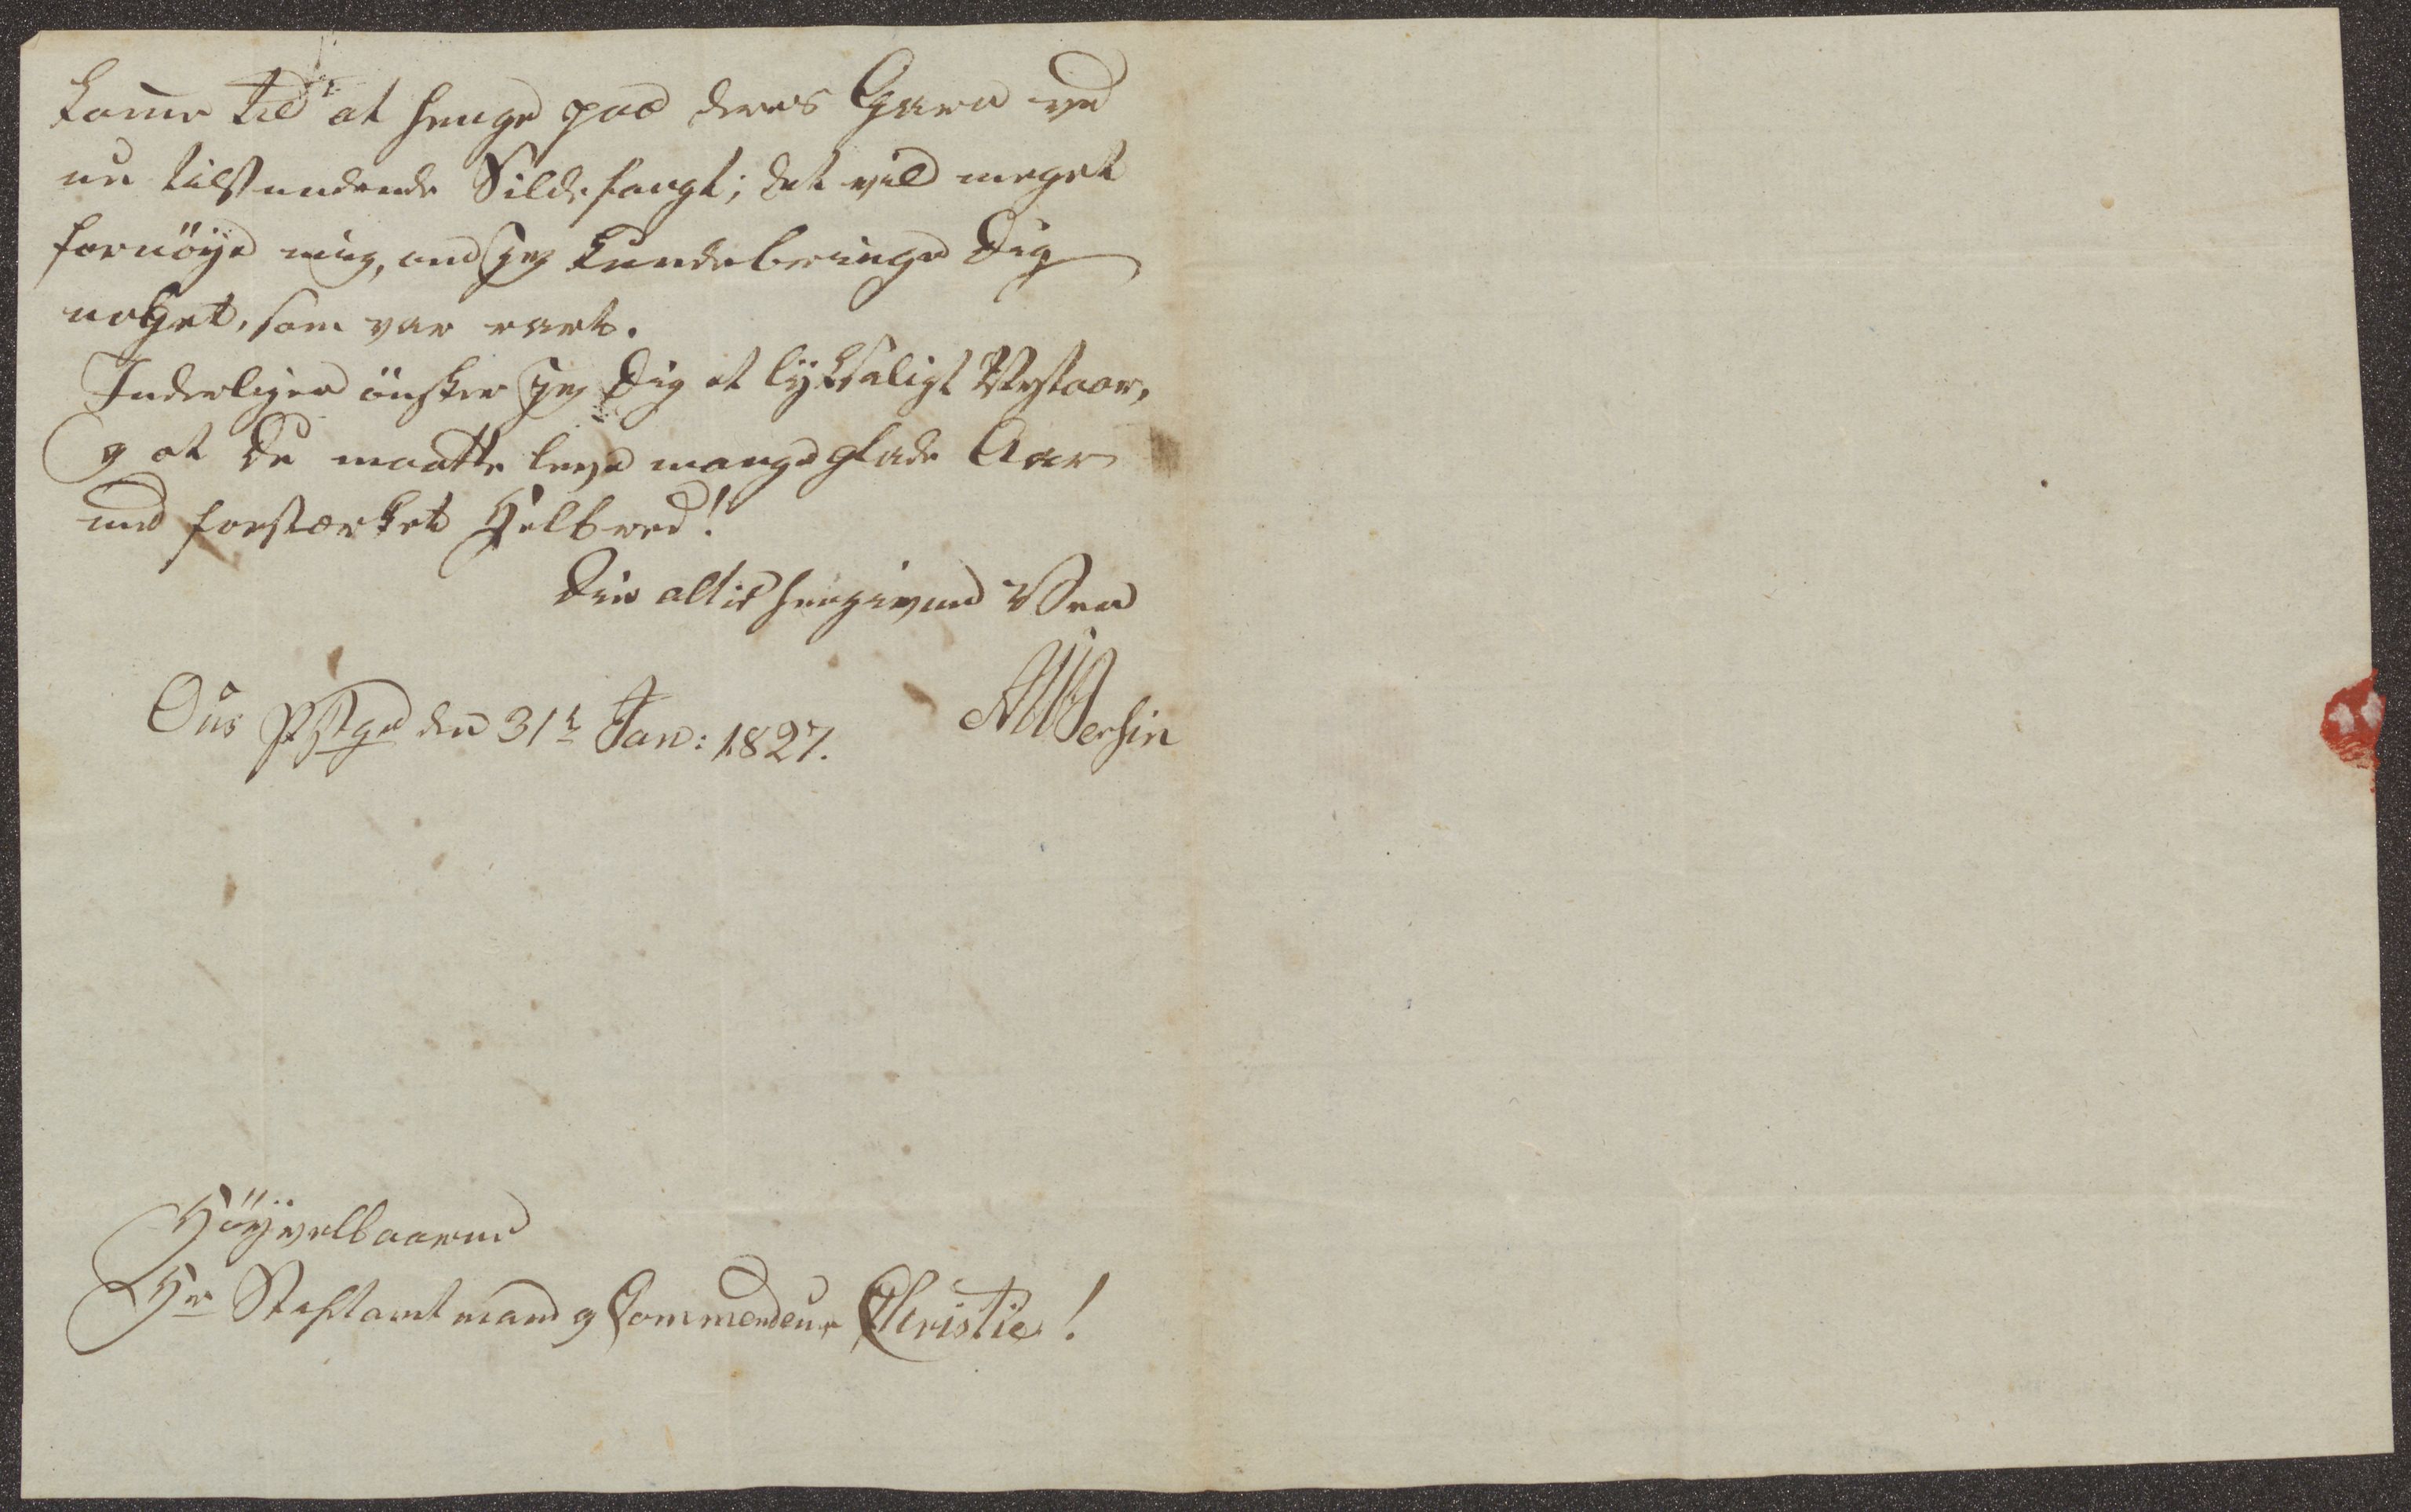 kom̅e til at henge paa deres Garn ved
nu tilstundende Sildefangt; det vild meget
fornöije mig, om jeg kunde bringe Dig
noget, som var rart.
Inderligen önsker jeg Dig et lyksaligt Nytaar,
og at Du maatte leve mange glade Aar
med forstærket Helbred!
Din altid hengivne Ven
Oũs Pstgd den 31t Jan: 1827.
Höyvelbaarne
Hr Stiftamtmand og Commendeur Christie!